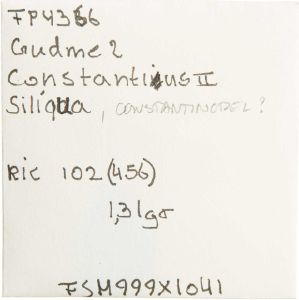 FP4366
Gudme 2
Constantius II
Siliqua, CONSTANTINOPEL?
RIC 102 (456)
1,31gr
FSM999X1041